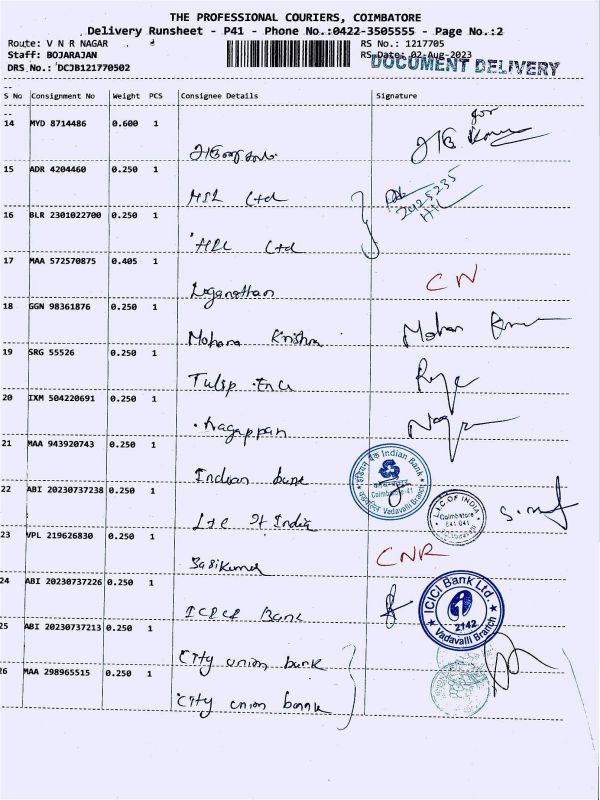 THE PROFESSIONAL COURIERS, COIMBATORE
Delivery Runsheet - P41 - Phone No.:0422-3505555 - Page No.:2
Route: V N R NAGAR RS No.: 1217705
Staff: BOJARAJAN RS Date: 02-Aug-2023
DRS No.: DCJB121770502 DOCUMENT DELIVERY
S No Consignment No Weight PCS Consignee Details Signature
14 MYD 8714486 0.600 1
for
15 ADR 4204460 0.250 1
Ltd
2425235
16 BLR 2301022700 0.250 1
Ltd
17 MAA 572570875 0.405 1
Loganathan CN
18 GGN 98361876 0.250 1
Mohana Krishna Mohan
19 SRG 55526 0.250 1
Tulip
20 IXM 504220691 0.250 1
Nagappan
21 MAA 943920743 0.250 1
Indian bank
Indian Bank
Coimbatore-41
Vadavalli Branch
22 ABI 20230737238 0.250 1
LIC of India
L.I.C OF INDIA
Coimbatore
641 041
23 VPL 219626830 0.250 1
Sasikumar CNR
24 ABI 20230737226 0.250 1
ICICI Bank
ICICI Bank Ltd.
2142
Vadavalli Branch
25 ABI 20230737213 0.250 1
City union bank
26 MAA 298965515 0.250 1
City union bank